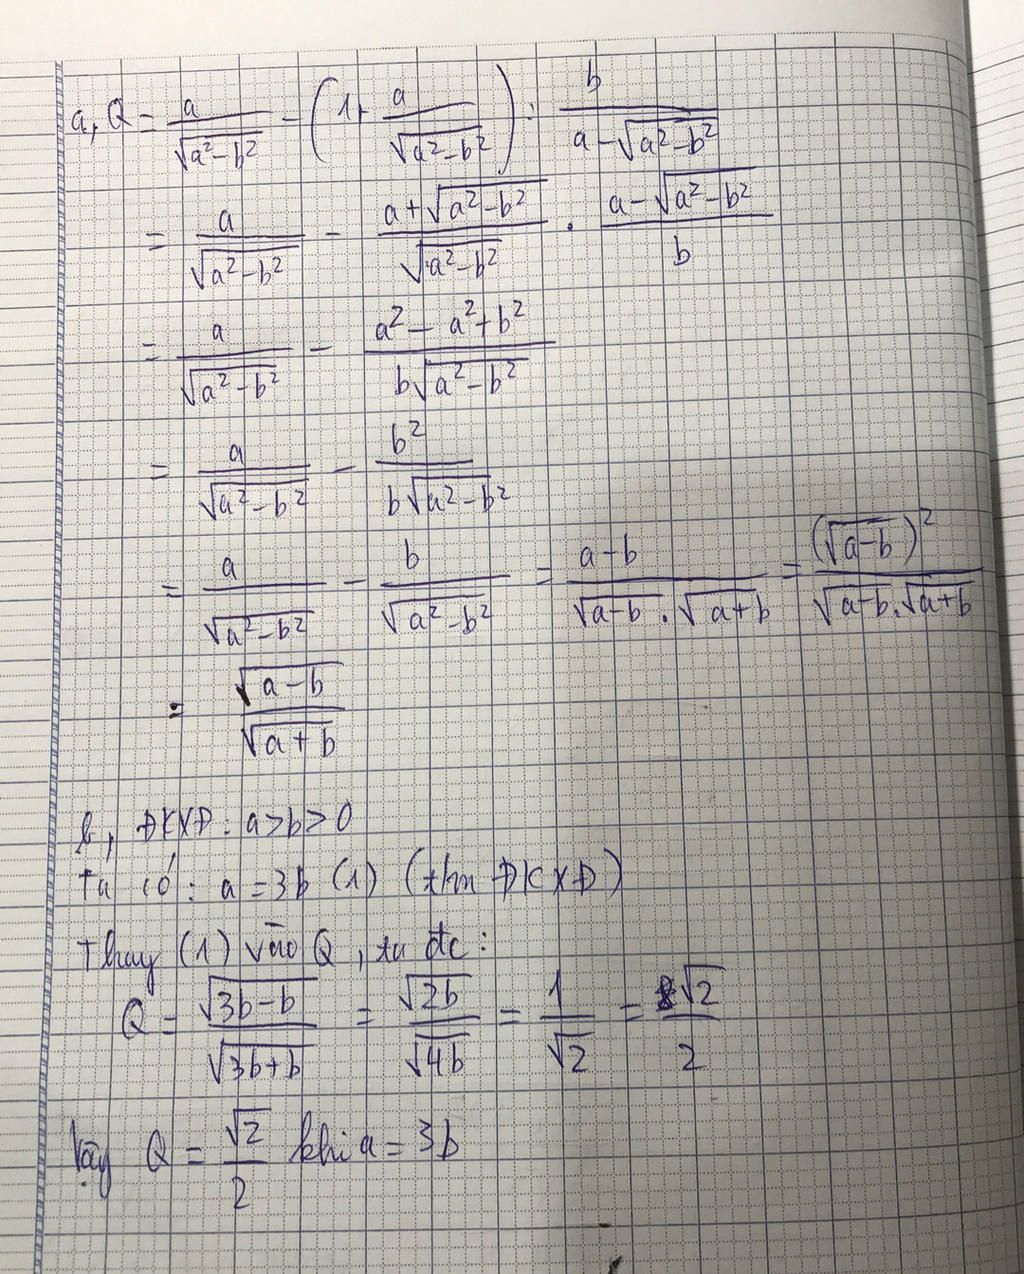 a, Q = a/√(a²-b²) - (1 + a/√(a²-b²)) : b/(a-√(a²-b²))
= a/√(a²-b²) - (a+√(a²-b²))/√(a²-b²) . (a-√(a²-b²))/b
= a/√(a²-b²) - (a² - a² + b²)/(b√(a²-b²))
= a/√(a²-b²) - b²/(b√(a²-b²))
= a/√(a²-b²) - b/√(a²-b²) = (a-b)/(√(a-b) . √(a+b)) = (√(a-b))²/(√(a-b) . √(a+b))
= √(a-b)/√(a+b)
b, ĐKXĐ: a>b>0
Ta có: a = 3b (1) (thm ĐKXĐ)
Thay (1) vào Q, ta đc:
Q = √(3b-b)/√(3b+b) = √(2b)/√(4b) = 1/√2 = √2/2
Vậy Q = √2/2 khi a = 3b